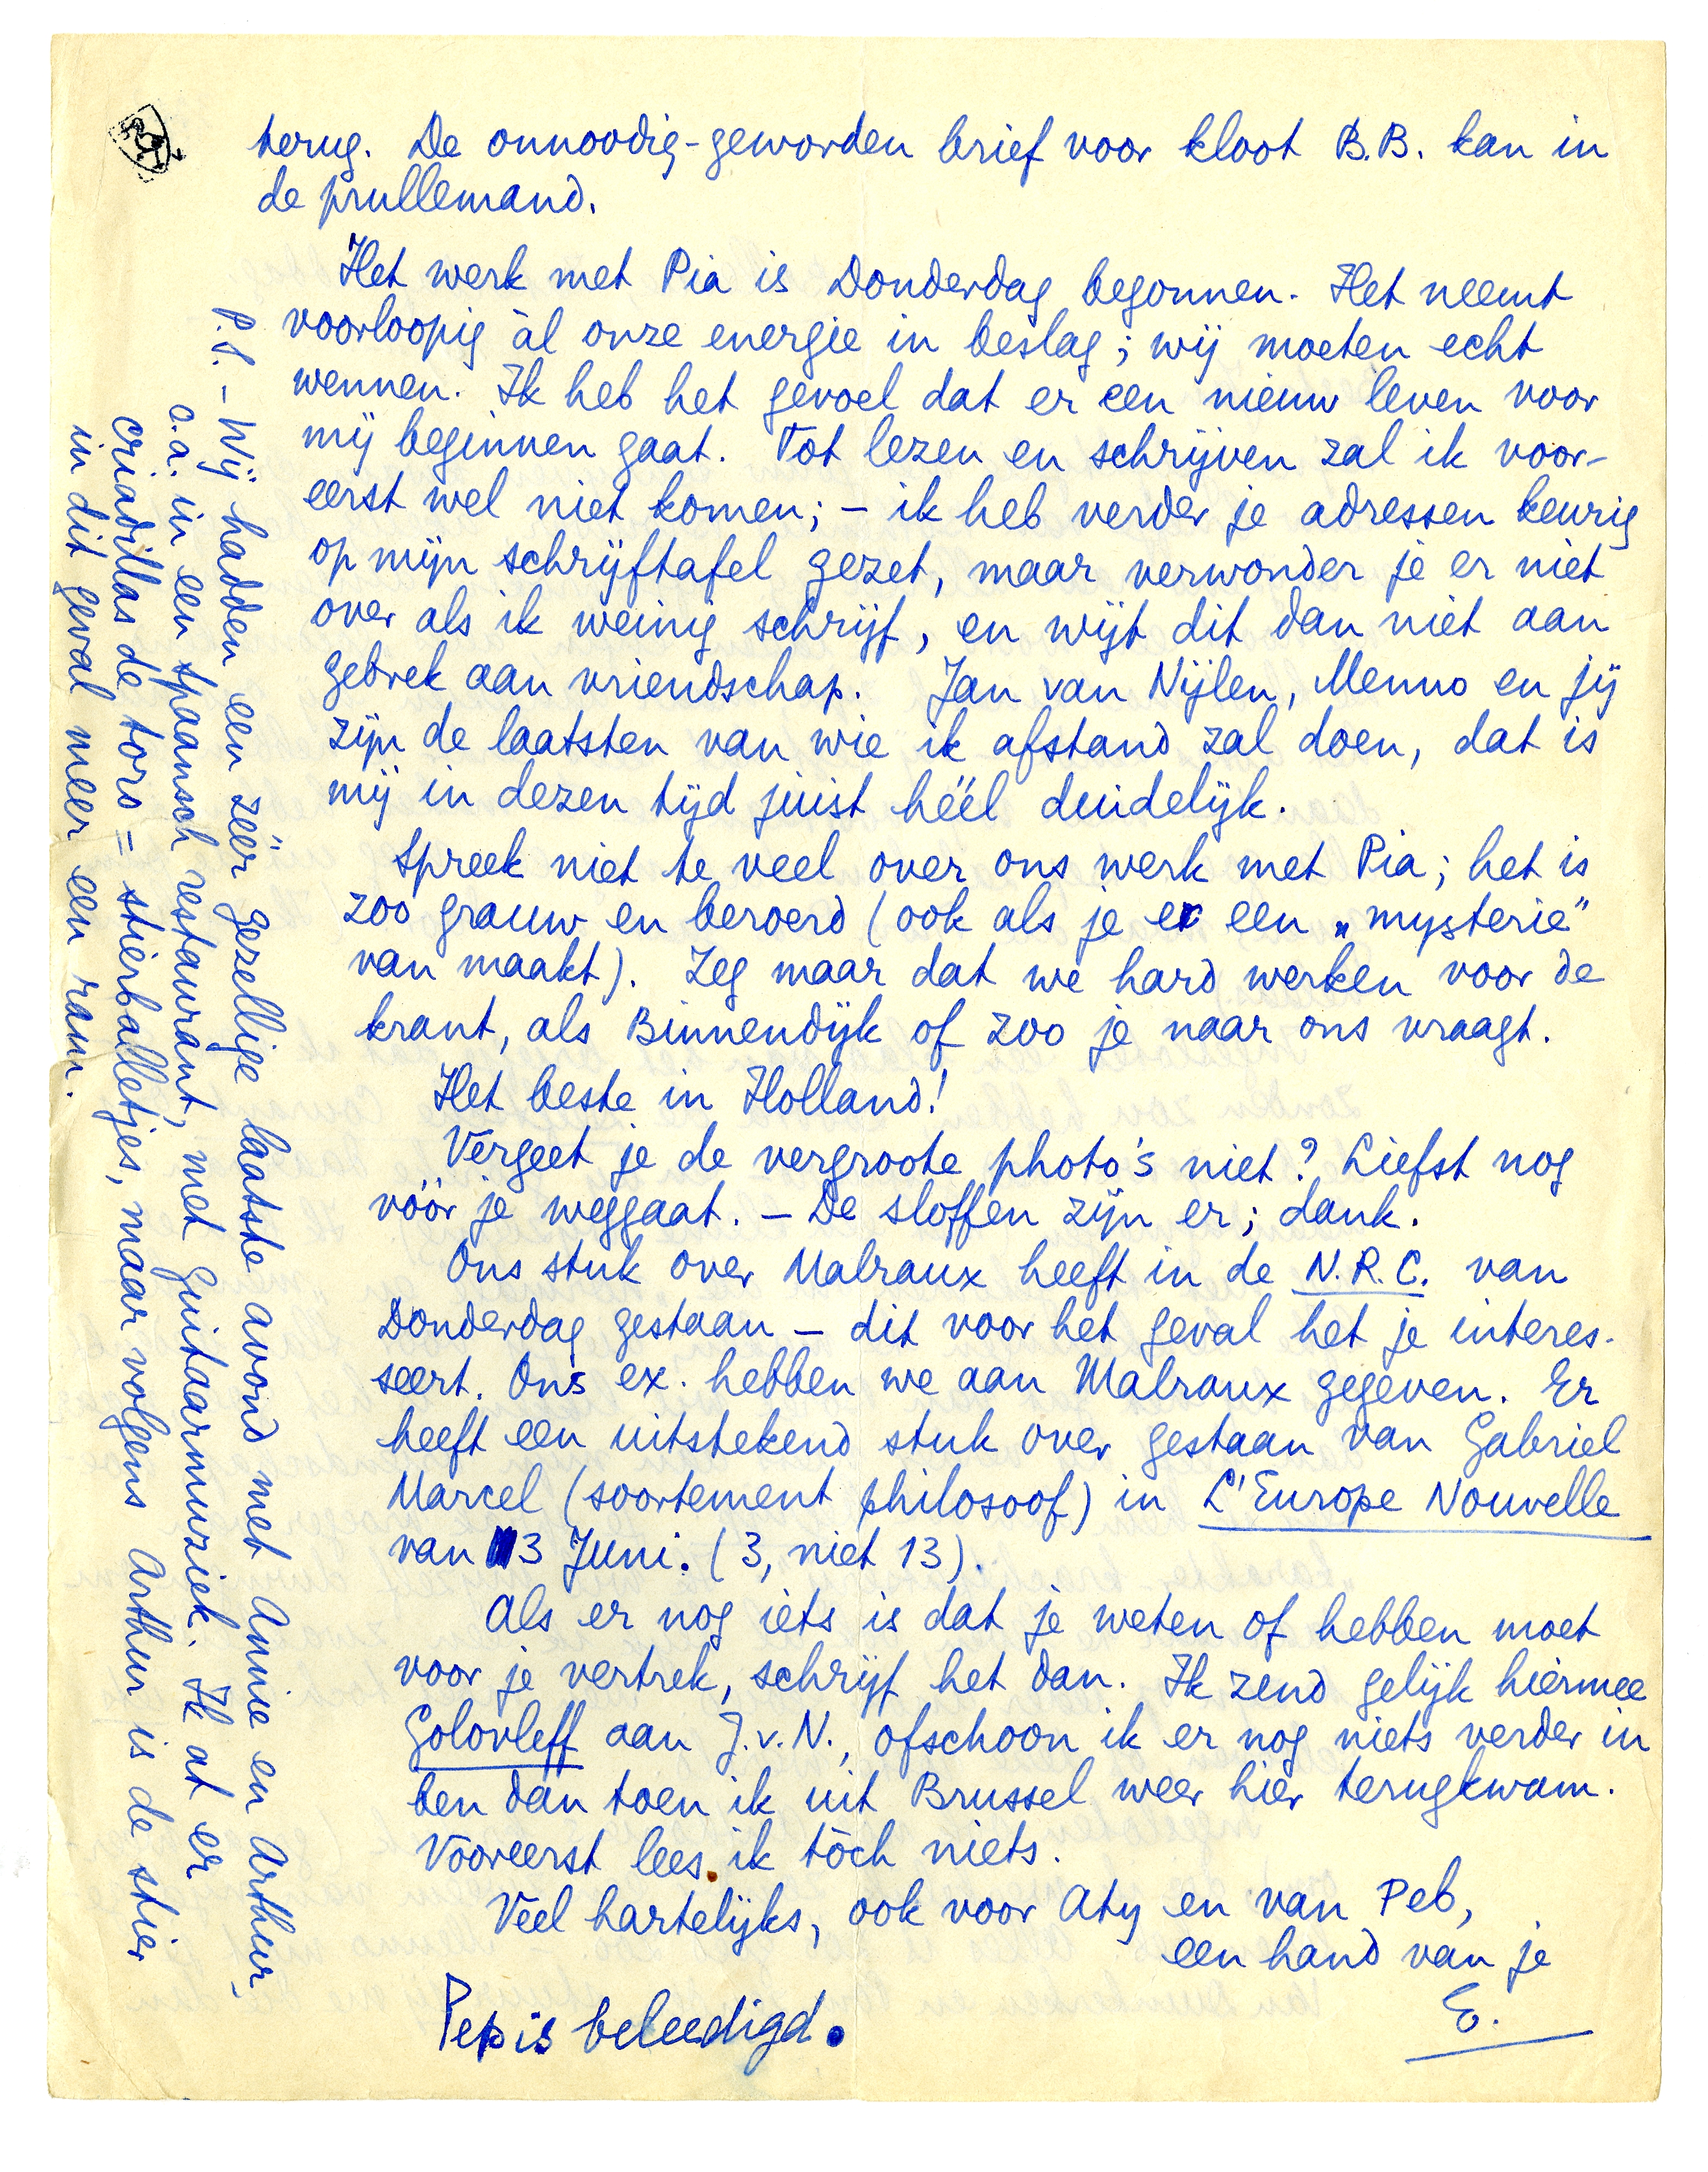 terug. De onnoodig-geworden brief voor kloot B.B. kan in
de prullemand.
Het werk met Pia is Donderdag begonnen. Het neemt
voorloopig àl onze energie in beslag; wij moeten echt
wennen. Ik heb het gevoel dat er een nieuw leven voor
mij beginnen gaat. Tot lezen en schrijven zal ik voor-
eerst wel niet komen; – ik heb verder je adressen keurig
op mijn schrijftafel gezet, maar verwonder je er niet
over als ik weinig schrijf, en wijt dit dan niet aan
gebrek aan vriendschap. Jan van Nijlen, Menno en jij
zijn de laatsten van wie ik afstand zal doen, dat is
mij in dezen tijd juist héél duidelijk.
Spreek niet te veel over ons werk met Pia; het is
zoo grauw en beroerd (ook als je er een „mysterie”
van maakt). Zeg maar dat we hard werken voor de
krant, als Binnendijk of zoo je naar ons vraagt.
Het beste in Holland!
Vergeet je de vergroote photo's niet? Liefst nog
vóór je weggaat. – De sloffen zijn er; dank.
Ons stuk over Malraux heeft in de N.R.C. van
Donderdag gestaan – dit voor het geval het je interes-
seert. Ons ex. hebben we aan Malraux gegeven. Er
heeft een uitstekend stuk over gestaan van Gabriel
Marcel (soortement philosoof) in L'Europe Nouvelle
van 3 Juni. (3, niet 13).
Als er nog iets is dat je weten of hebben moet
voor je vertrek, schrijf het dan. Ik zend gelijk hiermee
Golovleff aan J.v.N., ofschoon ik er nog niets verder in
ben dan toen ik uit Brussel weer hier terugkwam.
Vooreerst lees ik tòch niets.
Veel hartelijks, ook voor Aty en van Peb,
een hand van je
E.
Pep is beleedigd.
P.S. – Wij hadden een zéér gezellige laatste avond met Annie en Arthur,
o.a. in een spaansch restaurant, met guitaarmuziek. Ik at er
criadillas de toro = stierballetjes, maar volgens Arthur is de stier
in dit geval meer een ram.